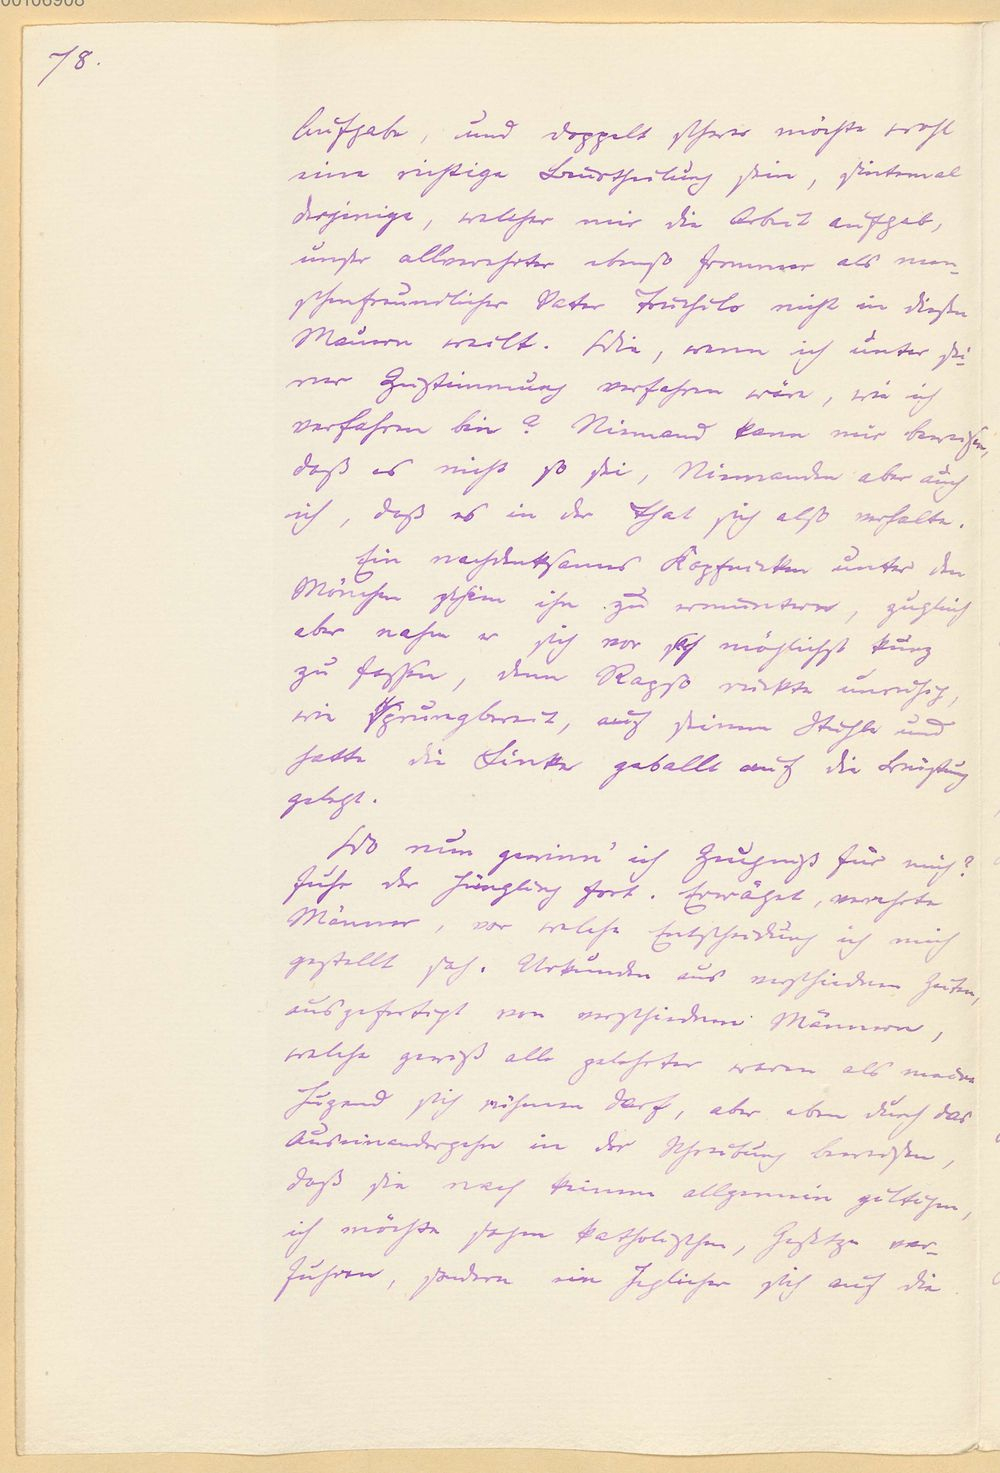 00106968
78.
Aufgabe, und doppelt schwer möchte wohl
eine richtige Beurtheilung sein, sintemal
derjenige, welcher mir die Arbeit aufgab,
unser allverehrter ebenso frommer als men-
schenfreundlicher Vater Truchilo nicht in diesen
Mauern weilt. Wie, wenn ich unter sei-
ner Zustimmung verfahren wäre, wie ich
verfahren bin? Niemand kann mir beweisen,
daß es nicht so sei, Niemanden aber auch
ich, daß es in der That sich also verhalte.
Ein nachdenksames Kopfnicken unter den
Mönchen schien ihn zu ermuntern, zugleich
aber nahm er sich vor sich möglichst kurz
zu fassen, denn Rapso rückte unruhig,
wie sprungbereit, auf seinem Stuhle und
hatte die Linke geballt auf die Brüstung
gelegt.
Wo nun gewinn' ich Zeugniß für mich?
fuhr der Jüngling fort. Erwäget, verehrte
Männer, vor welche Entscheidung ich mich
gestellt sah. Urkunden aus verschiedenen Zeiten,
ausgefertigt von verschiedenen Männern,
welche gewiß alle gelehrter waren als meine
Jugend sich rühmen darf, aber eben durch das
Auseinandergehn in der Schreibung beweisen,
daß sie nach keinem allgemein giltigen,
ich möchte sagen katholischen, Gesetze ver-
fuhren, sondern ein Jeglicher sich auf die